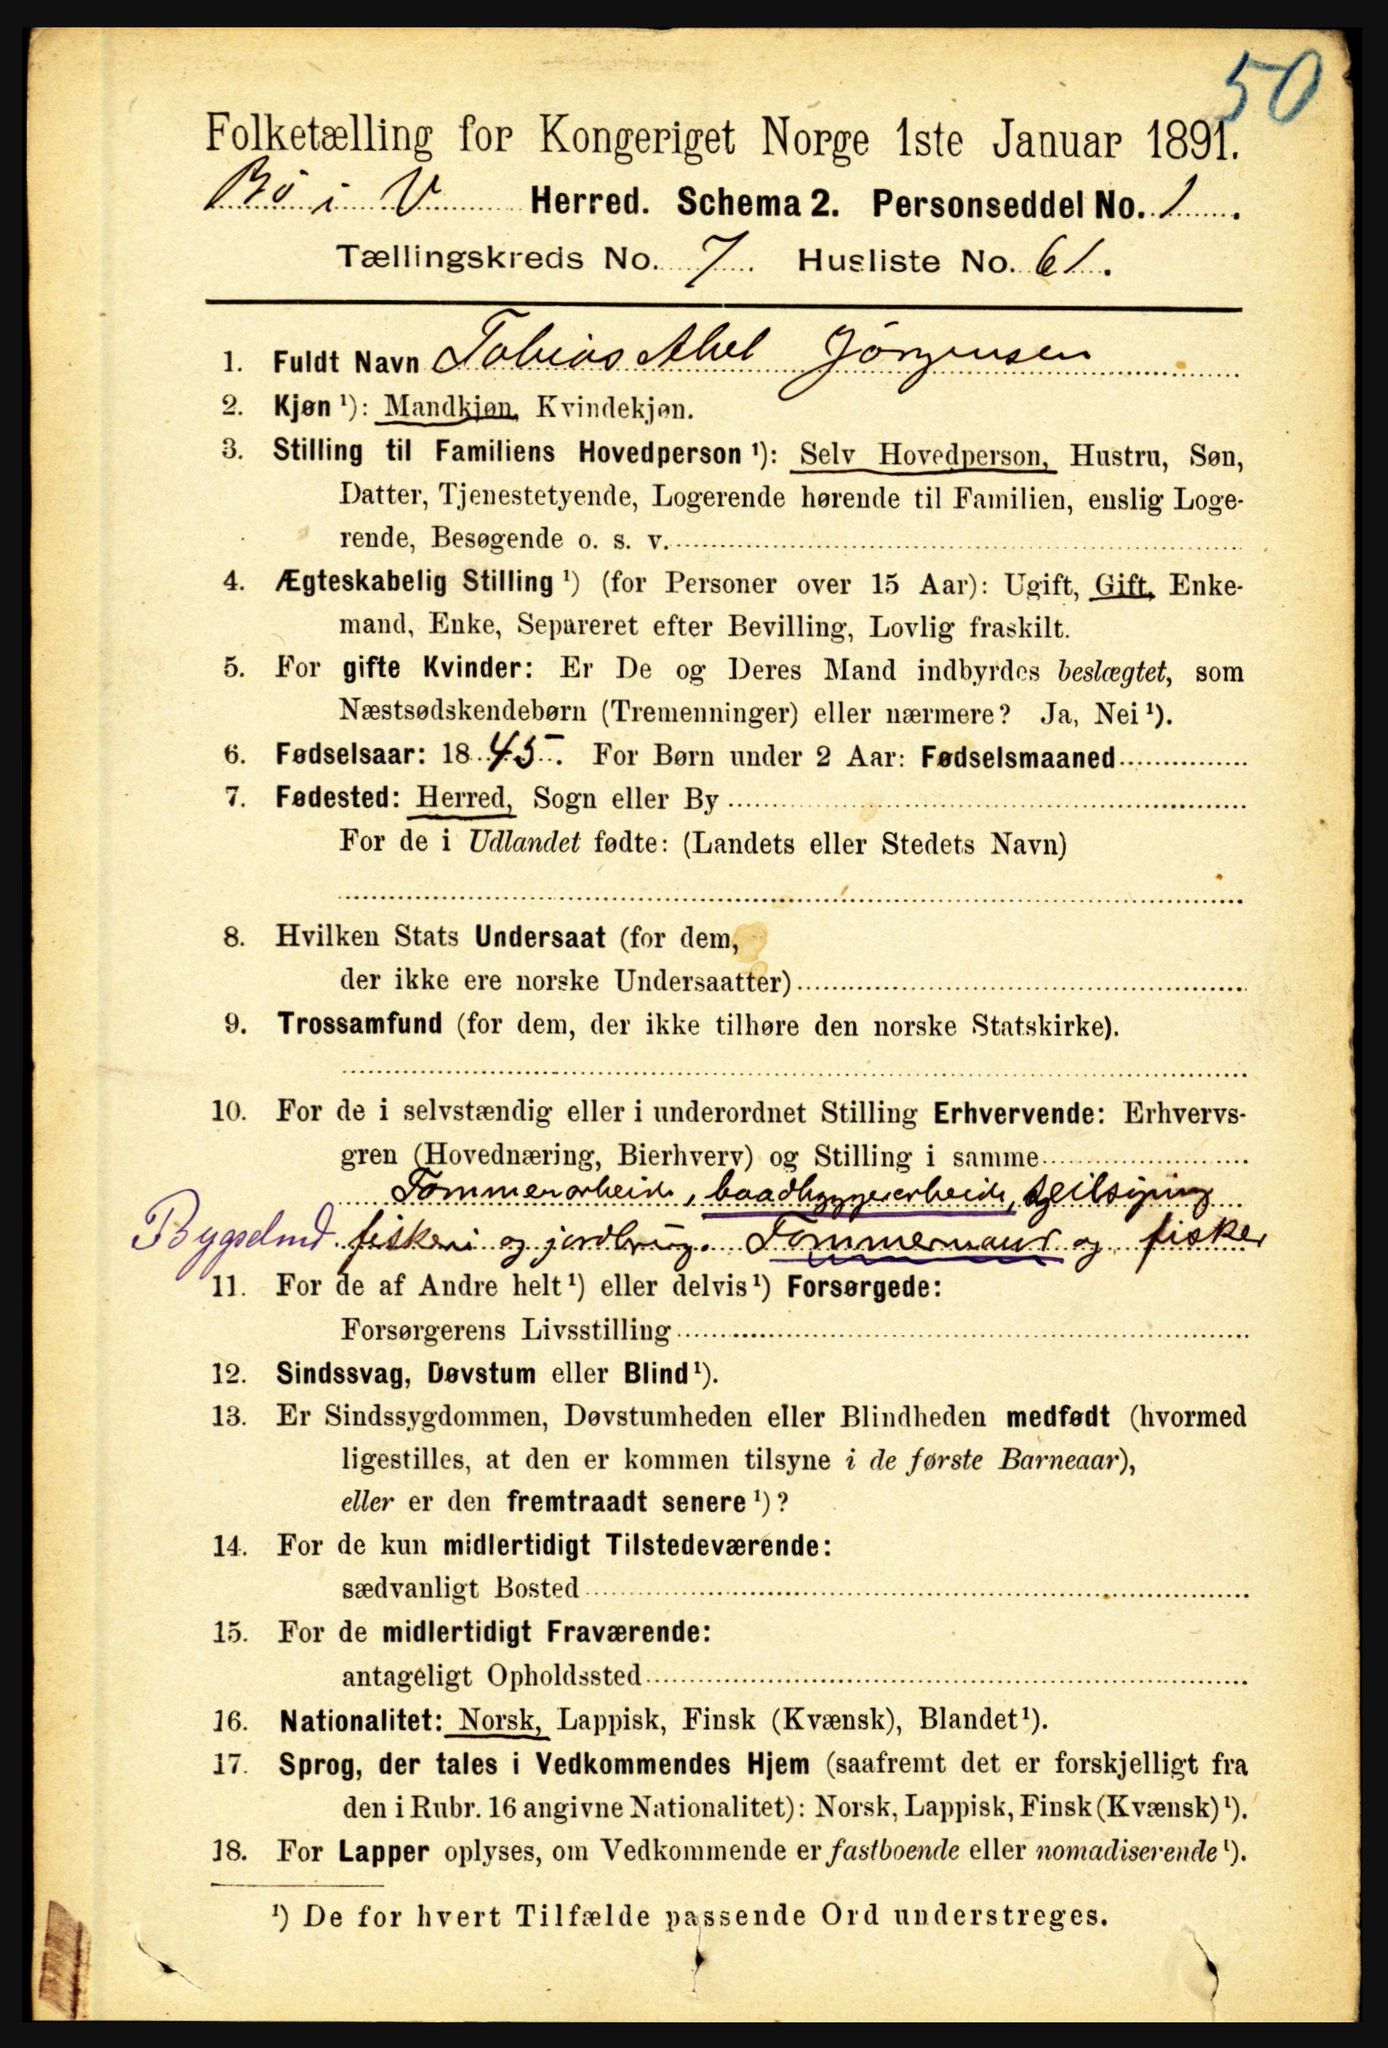 50
Folketælling for Kongeriget Norge 1ste Januar 1891.
Bö i V Herred. Schema 2. Personseddel No. 1.
Tællingskreds No. 7. Husliste No. 61.
1. Fuldt Navn Tobias Abel Jörgensen
2. Kjøn ¹): Mandkjøn, Kvindekjøn.
3. Stilling til Familiens Hovedperson ¹): Selv Hovedperson, Hustru, Søn,
Datter, Tjenestetyende, Logerende hørende til Familien, enslig Loge-
rende, Besøgende o. s. v.
4. Ægteskabelig Stilling ¹) (for Personer over 15 Aar): Ugift, Gift, Enke-
mand, Enke, Separeret efter Bevilling, Lovlig fraskilt.
5. For gifte Kvinder: Er De og Deres Mand indbyrdes beslægtet, som
Næstsødskendebørn (Tremenninger) eller nærmere? Ja, Nei ¹).
6. Fødselsaar: 1845. For Børn under 2 Aar: Fødselsmaaned
7. Fødested: Herred, Sogn eller By
For de i Udlandet fødte: (Landets eller Stedets Navn)
8. Hvilken Stats Undersaat (for dem,
der ikke ere norske Undersaatter)
9. Trossamfund (for dem, der ikke tilhøre den norske Statskirke).
10. For de i selvstændig eller i underordnet Stilling Erhvervende: Erhvervs-
gren (Hovednæring, Bierhverv) og Stilling i samme
Tømmerarbeide, baadbyggerarbeide,
Bygselmd fiskeri og jordbrug. Tømmermand og fisker
11. For de af Andre helt ¹) eller delvis ¹) Forsørgede:
Forsørgerens Livsstilling
12. Sindssvag, Døvstum eller Blind ¹).
13. Er Sindssygdommen, Døvstumheden eller Blindheden medfødt (hvormed
ligestilles, at den er kommen tilsyne i de første Barneaar),
eller er den fremtraadt senere ¹)?
14. For de kun midlertidigt Tilstedeværende:
sædvanligt Bosted
15. For de midlertidigt Fraværende:
antageligt Opholdssted
16. Nationalitet: Norsk, Lappisk, Finsk (Kvænsk), Blandet ¹).
17. Sprog, der tales i Vedkommendes Hjem (saafremt det er forskjelligt fra
den i Rubr. 16 angivne Nationalitet): Norsk, Lappisk, Finsk (Kvænsk) ¹).
18. For Lapper oplyses, om Vedkommende er fastboende eller nomadiserende ¹).
¹) De for hvert Tilfælde passende Ord understreges.